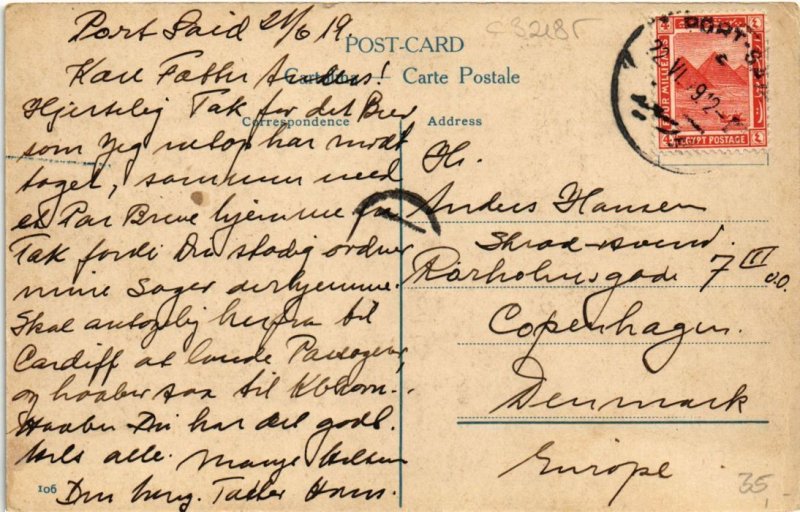 Port Said 21/6 19.
C3218F
POST-CARD
Kære Fætter Anders!
Cartolina Carte Postale
Hjertelig Tak for det Brev
Correspondence
som jeg netop har modt
taget, sammen med
et Par Breve hjemme fra
Tak fordi Du stadig ordner
mine Sager derhjemme.
Skal antagelig herfra til
Cardiff at lande
og haaber saa til Kbhavn.
Haaber Du har det godt.
Hils alle. Mange Hilsen
Din heng. Fætter Hans.
106
Address
Hr.
Anders Hansen
Rörholmsgade 7 III
Copenhagen.
Denmark
Europe
35,-
PORT-SAID
22 VI 912
FOUR MILLIEMES
EGYPT POSTAGE
4
4